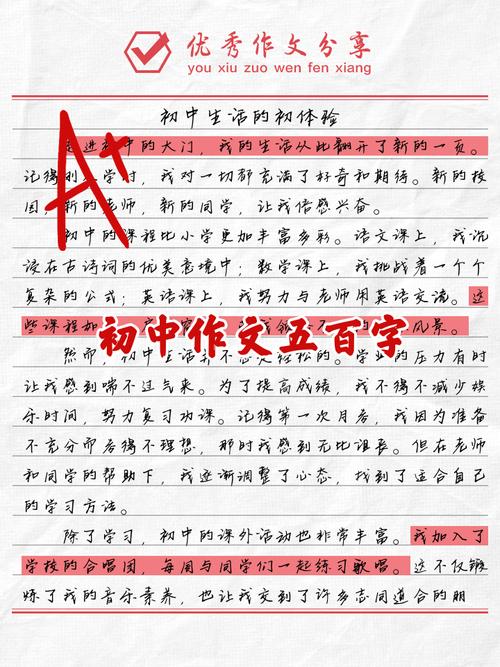 优秀作文分享
you xiu zuo wen fen xiang
A+
初中生活的初体验
进初中的大门，我的生活从此翻开了新的一页。
记得刚入学时，我对一切都充满了好奇和期待。新的校
园，新的老师，新的同学，让我倍感兴奋。
初中的课程比小学更加丰富多彩。语文课上，我沉
浸在古诗词的优美意境中；数学课上，我挑战着一个个
复杂的公式；英语课上，我努力与老师用英语交流。这
些课程如风景。
初中作文五百字
然而，初中生活并不总是轻松的。学业的压力有时
让我感到喘不过气来。为了提高成绩，我不得不减少娱
乐时间，努力复习功课。记得第一次月考，我因为准备
不充分而考得不理想，那时我感到无比沮丧。但在老师
和同学的帮助下，我逐渐调整了心态，找到了适合自己
的学习方法。
除了学习，初中的课外活动也非常丰富。我加入了
学校的合唱团，每周与同学们一起练习歌唱。这不仅锻
炼了我的音乐素养，也让我交到了许多志同道合的朋